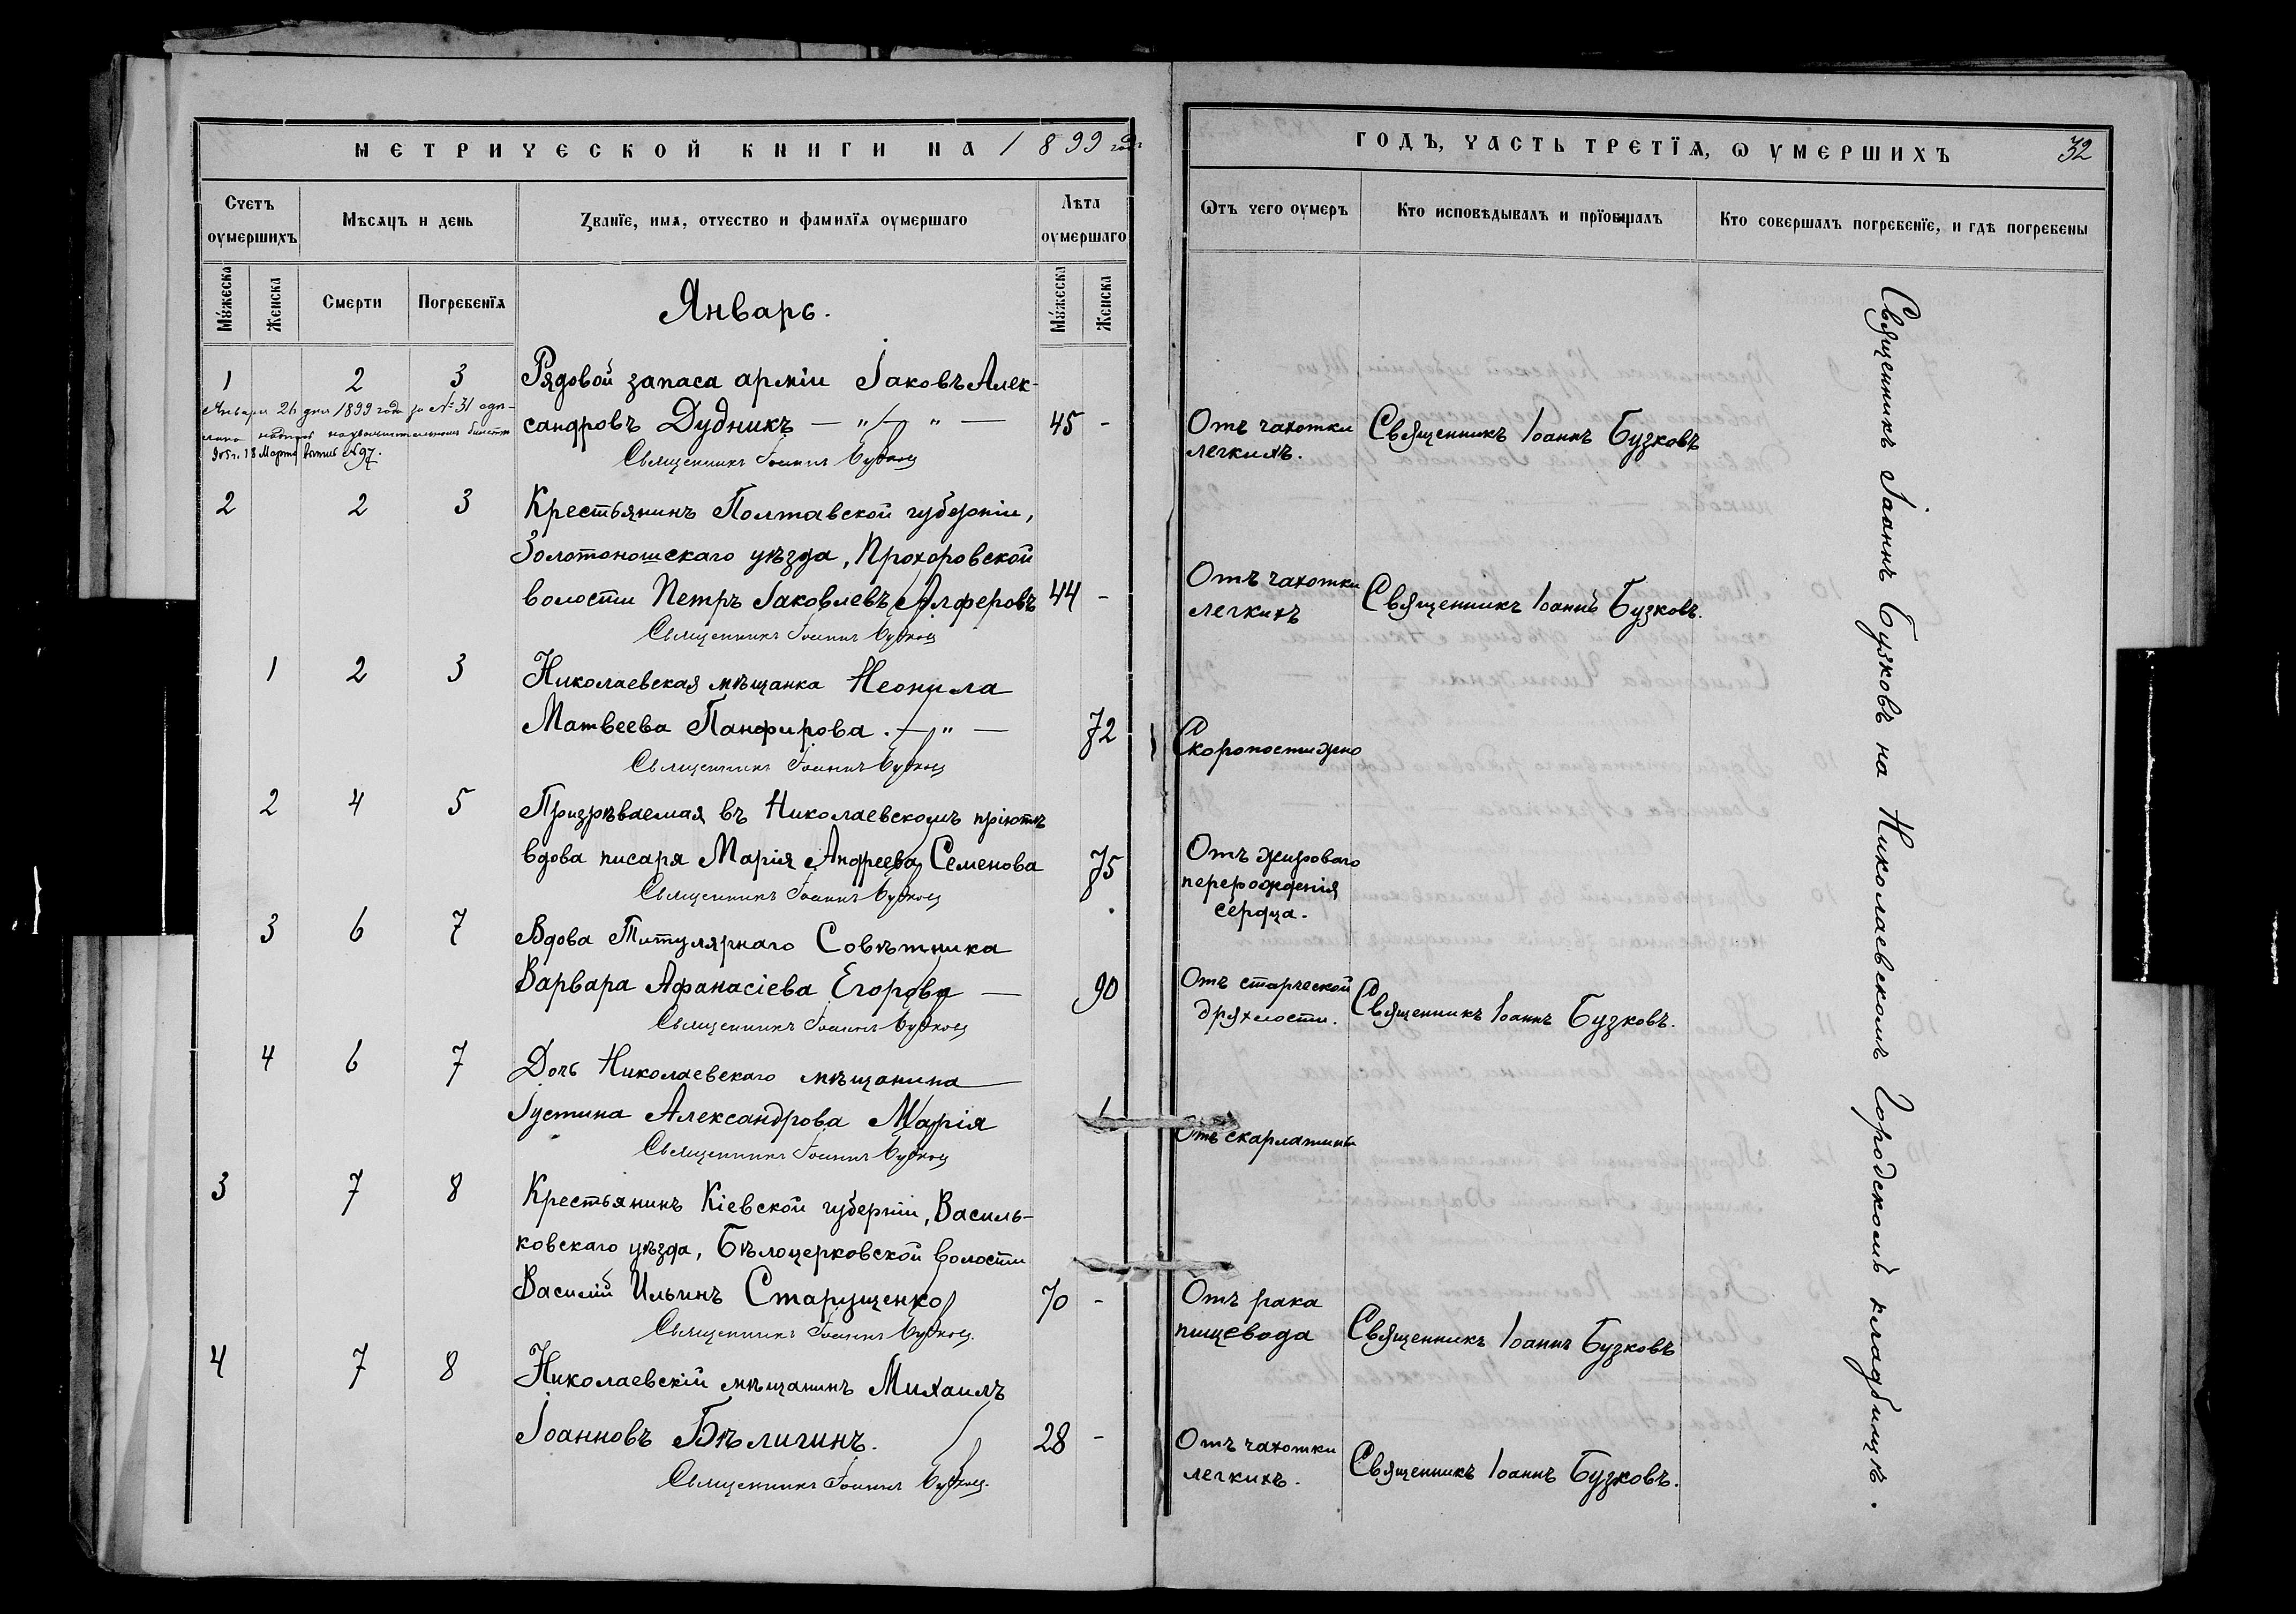 МЕТРИЧЕСКОЙ КНИГИ НА 1899 годъ
Счетъ оумершихъ
Мѣсяцъ и день
Званїе, имѧ, отчество и фамилїѧ оумершаго
Лѣта оумершаго
Мꙋжеска
Женска
Смерти
Погребенїѧ
Мꙋжеска
Женска
Январь.
1 2 3 Рядовой запаса арміи Іаковъ Алек-
сандровъ Дудникъ — „ — „ — 45 -
Января 26 дня 1899 года за № 31
905 г. 18 Марта № 97.
Священникъ Іоаннъ Бузковъ
2 2 3 Крестьянинъ Полтавской губерніи,
Золотоношскаго уѣзда, Прохоровской
волости Петръ Іаковлевъ Алферовъ 44 -
Священникъ Іоаннъ Бузковъ
1 2 3 Николаевская мѣщанка Неонила
Матвеева Панфирова. — „ — 72
Священникъ Іоаннъ Бузковъ
2 4 5 Призрѣваемая въ Николаевскомъ пріютѣ
вдова писаря Марія Андреева Семенова 75
Священникъ Іоаннъ Бузковъ
3 6 7 Вдова Титулярнаго Совѣтника
Варвара Афанасіева Егорова — 90
Священникъ Іоаннъ Бузковъ
4 6 7 Дочь Николаевскаго мѣщанина
Іустина Александрова Марія 1
Священникъ Іоаннъ Бузковъ
3 7 8 Крестьянинъ Кіевской губерніи, Василь-
ковскаго уѣзда, Бѣлоцерковской волости
Василій Ильинъ Старущенко 70 -
Священникъ Іоаннъ Бузковъ.
4 7 8 Николаевскій мѣщанинъ Михаилъ
Іоанновъ Бѣлигинъ. 28 -
Священникъ Іоаннъ Бузковъ.
ГОДЪ, ЧАСТЬ ТРЕТЇѦ, Ѡ УМЕРШИХЪ 32
Ѿтъ чего оумеръ
Кто исповѣдывалъ и прїобщалъ
Кто совершалъ погребенїе, и гдѣ погребены
Отъ чахотки Священникъ Іоаннъ Бузковъ
легкихъ.
Отъ чахотки Священникъ Іоаннъ Бузковъ.
легкихъ
Скоропостижно
Отъ жироваго
перерожденія
сердца.
Отъ старческой Священникъ Іоаннъ Бузковъ.
дряхлости.
Отъ скарлатины
Отъ рака
пищевода Священникъ Іоаннъ Бузковъ
Отъ чахотки Священникъ Іоаннъ Бузковъ.
легкихъ.
Священникъ Іоаннъ Бузковъ на Николаевскомъ Городскомъ кладбищѣ.